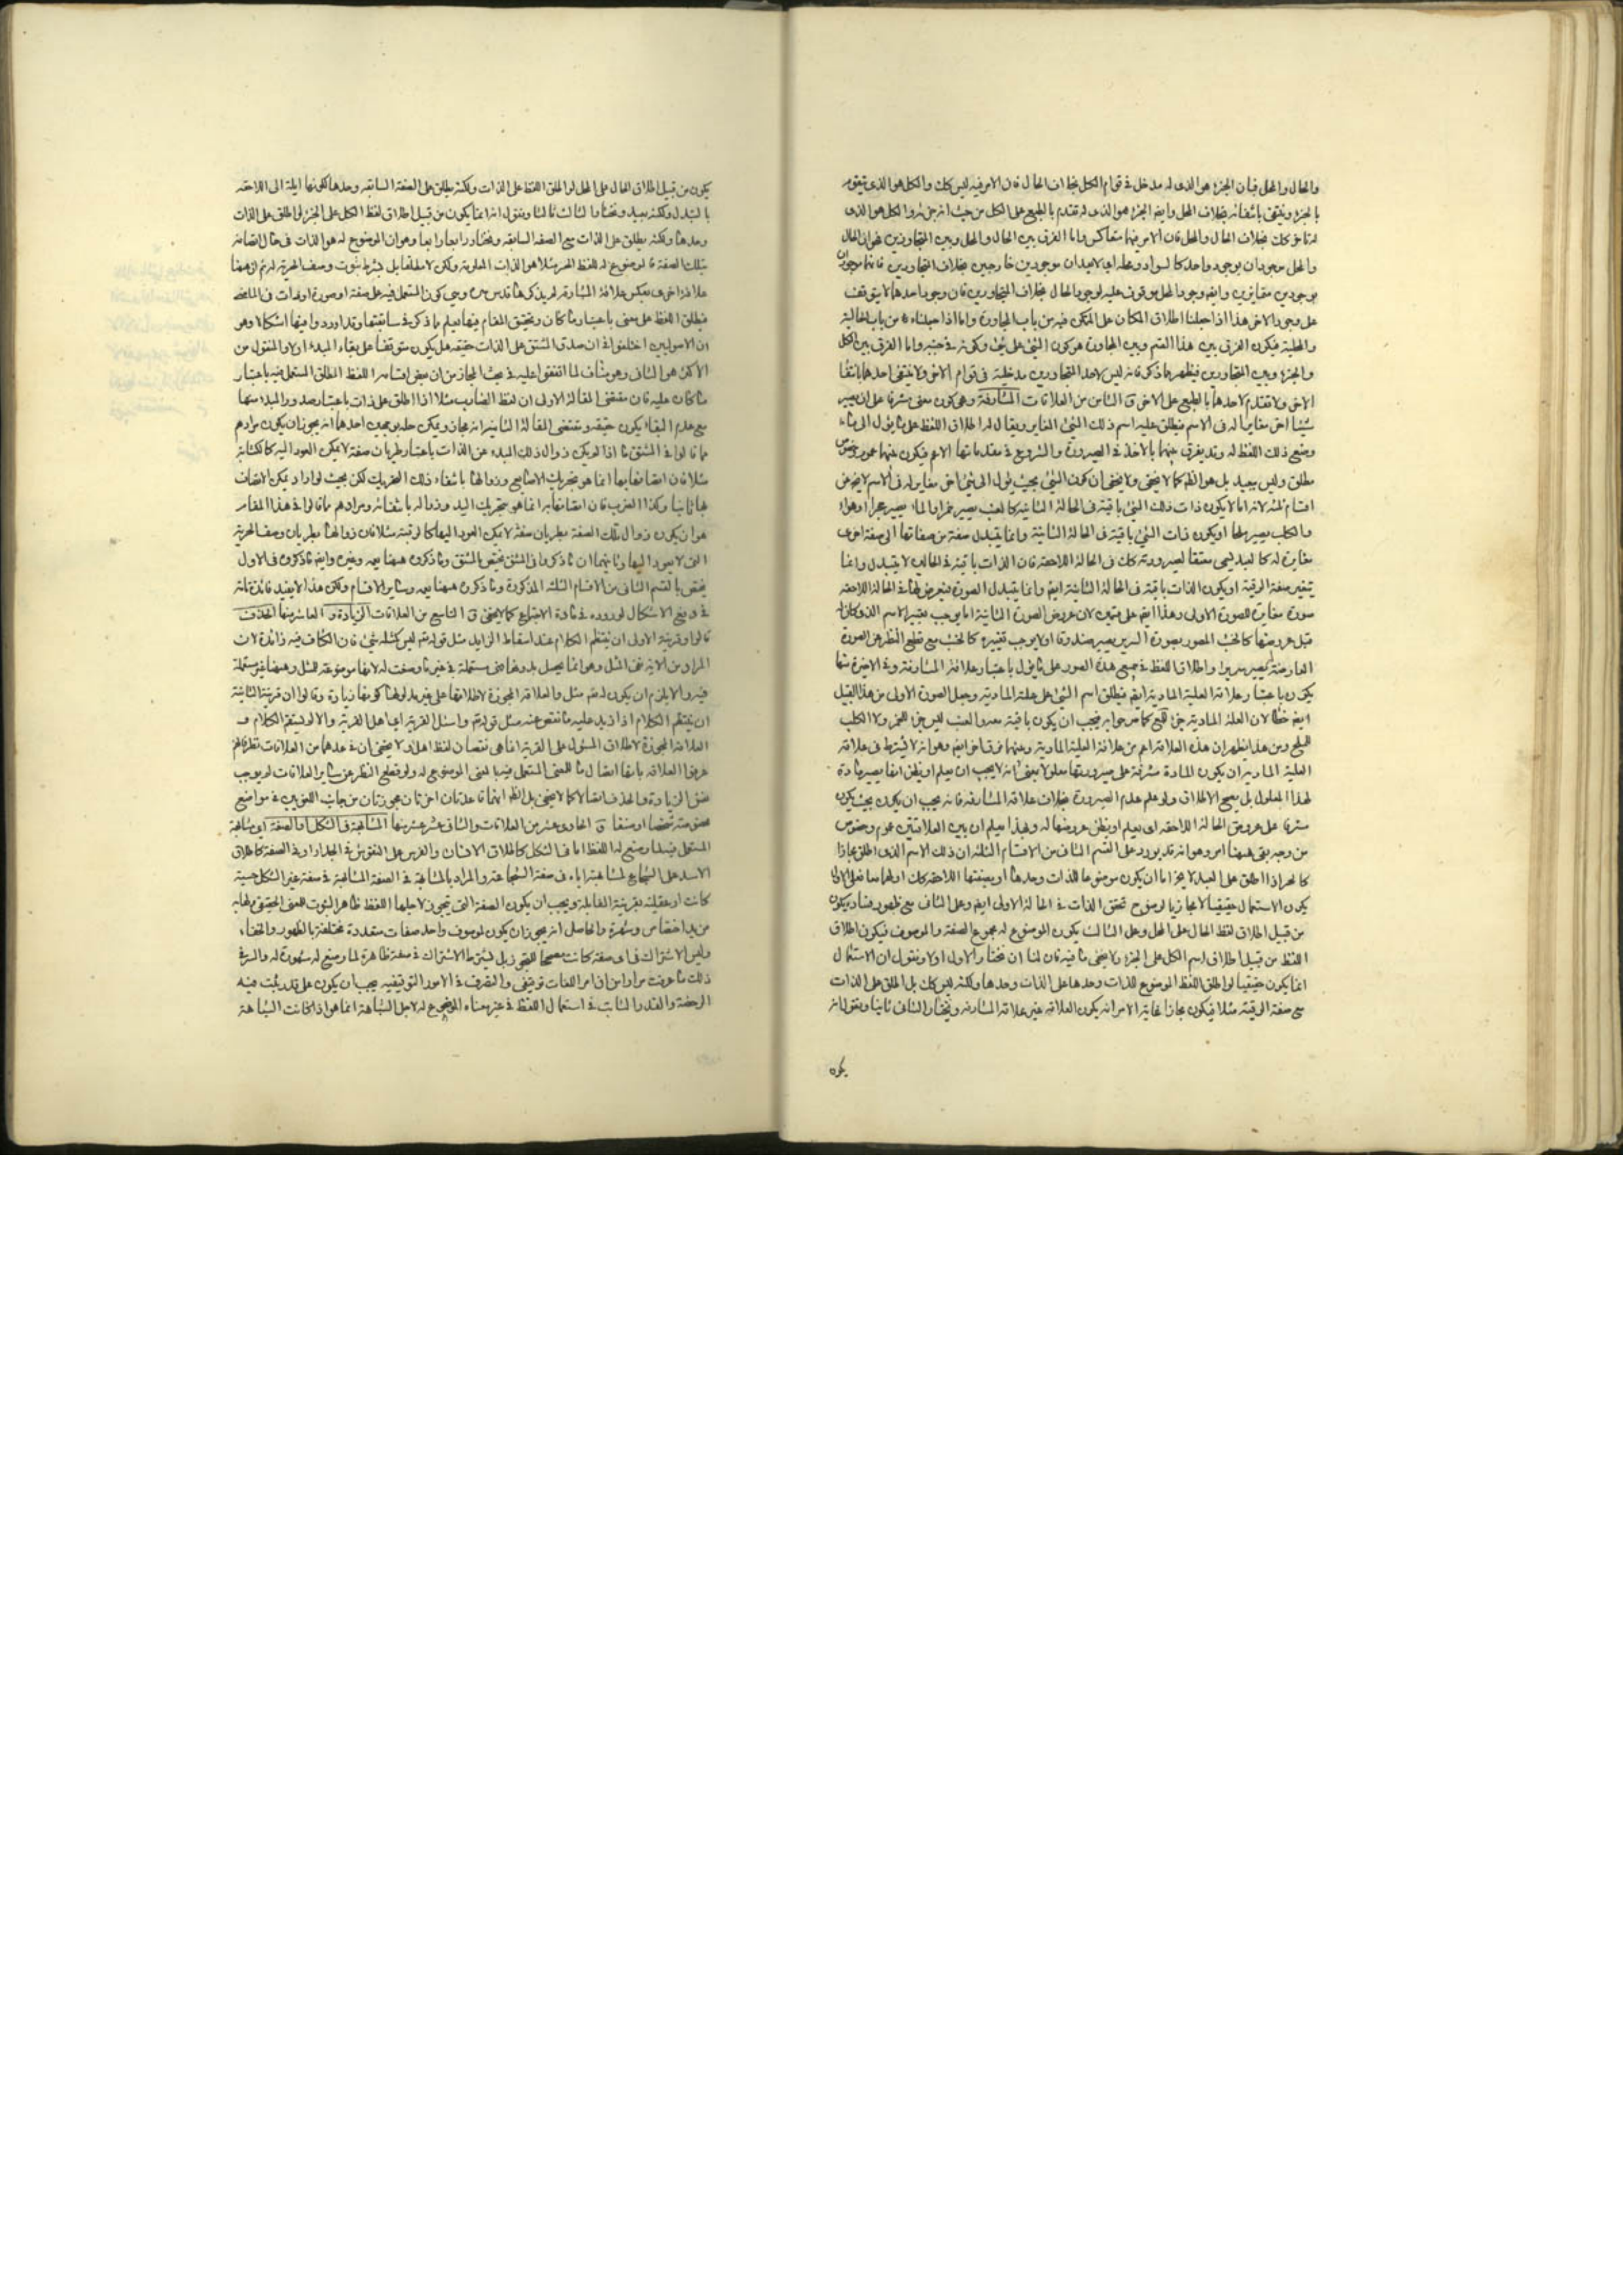 والحال والمحل فبان الجزء هو الذى له مدخل فى قوام الكل بخلاف الحال فان الامر فيه ليس كك والكل هو الذى يتقوم
بالجزء وينتفى بانتفائه بخلاف المحل وايضا الجزء هو الذى له تقدم بالطبع على الكل من حيث انه جزء له والكل هو الذى
له تاخر كك بخلاف الحال والمحل فان الامر فيهما متعاكس واما الفرق بين الحال والمحل وبين المتجاورين فهو ان الحال
والمحل موجودان بوجود واحد كالسواد ومحله اى لا يعدان موجودين خارجين بخلاف المتجاورين فانهما موجودان
بوجودين متغايرين وايضا وجود المحل موقوف عليه لوجود الحال بخلاف المتجاورين فان وجود احدهما لا يتوقف
على وجود الاخر هذا اذا جعلنا اطلاق المكان على المتمكن فيه من باب المجاورة واما اذا جعلناه من باب الحالية
والمحلية فيكون الفرق بين هذا القسم وبين المجاورة هو كون الشئ على شئ وكونه فى جنبه واما الفرق بين الكل
والجزء وبين المتجاورين فيظهر مما ذكر فانه ليس لاحد المتجاورين مدخلية فى قوام الاخر ولا ينتفى احدهما بانتفاء
الاخر ولا تقدم لاحدهما بالطبع على الاخر ق الثامن من العلاقات المشارفة وهى كون معنى مشرفا على ان يصير
شيئا اخر مغايرا له فى الاسم فيطلق عليه اسم ذلك الشئ المغاير ويقال له اطلاق اللفظ على ما يؤل الى ما
وضع ذلك اللفظ له وقد يفرق بينهما بالاخذ فى الصيرورة والشروع فى مقدماتها الاعم فيكون بينهما عموم وخصوص
مطلق وليس ببعيد بل هو الظ كما لا يخفى ولا يخفى ان كون الشئ بحيث يؤل الى شئ اخر مغاير له فى الاسم لا يخ من
اقسام ثلثة لانه اما لا يكون ذات ذلك الشئ باقية فى الحالة الثانية كالعنب يصير خمرا والماء يصير حجرا او هواء
والكلب يصير ملحا او يكون ذات الشئ باقية فى الحالة الثانية وانما يتبدل صفة من صفاتها الى صفة اخرى
مغايرة له كالعبد يسمى معتقا لصيرورته كك فى الحالة اللاحقة فان الذات باقية فى الحالين لا يتبدل وانما
يتغير صفة الرقية او يكون الذات باقية فى الحالة الثانية ايضا وانما يتبدل الصورة فيعرض لها فى الحالة اللاحقة
صورة مغايرة للصورة الاولى وهذا ايضا على قسمين لان عروض الصورة الثانية اما يوجب تغيير الاسم الذى كان لها
قبل عروضها كالخشب المصور بصورة السرير يصير صندوقا او لا يوجب تغييره كالخشب مع قطع النظر عن الصورة
العارضة يصير سريرا واطلاق اللفظ فى جميع هذه الصور على ما يؤل باعتبار علاقة المشارفة وفى الاخيرة منها
يكون باعتبار علاقة العلية المادية ايضا فيطلق اسم الشئ على علته المادية وجعل الصورة الاولى من هذا القبيل
ايضا خطأ لان العلة المادية جزء للشئ كما صرحوا به فيجب ان يكون باقية معه والعنب ليس جزء للخمر ولا الكلب
للملح ومن هذا يظهر ان هذه العلاقة اعم من علاقة العلية المادية وبينهما فرق اخر ايضا وهو انه لا يشترط فى علاقة
العلية المادية ان يكون المادة مشرفة على صيرورتها معلولا بمعنى انه لا يجب ان يعلم او يظن انها يصير مادة
لهذا المعلول بل يصح الاطلاق ولو علم عدم الصيرورة بخلاف علاقة المشارفة فانه يجب ان يكون بحيث يكون
مشرفا على عروض الحالة اللاحقة اى يعلم او يظن عروضها له وبهذا يعلم ان بين العلاقتين عموم وخصوص
من وجه بقى ههنا امر وهو انه قد يورد على القسم الثانى من الاقسام الثلثة ان ذلك الاسم الذى اطلق مجازا
كالحر اذا اطلق على العبد لا يخ اما ان يكون موضوعا للذات وحدها او بصفتها اللاحقة كك او لهما معا فعلى الاول
يكون الاستعمال حقيقيا لا مجازيا لوضوح تحقق الذات فى الحالة الاولى ايضا وعلى الثانى مع ظهور فساده يكون
من قبيل اطلاق لفظ الحال على المحل وعلى الثالث يكون الموضوع له مجموع الصفة والموصوف فيكون اطلاق
اللفظ من قبيل اطلاق اسم الكل على الجزء ولا يخفى ما فيه فان لنا ان نختار الاول اولا ونقول ان الاستعمال
انما يكون حقيقيا لو اطلق اللفظ الموضوع للذات وحدها على الذات وحدها ولكنه ليس كك بل اطلق على الذات
مع صفة الرقية مثلا فيكون مجازا غاية الامر انه يكون العلاقة غير علاقة المشارفة ونختار الثانى ثانيا ونقول انه
يكون
يكون من قبيل اطلاق الحال على المحل لو اطلق اللفظ على الذات ولكنه يطلق على الصفة السابقة وحدها لكونها ايلة الى اللاحقة
بالتبدل ولكنه بعيد ونختار الثالث ثالثا ونقول انه انما يكون من قبيل اطلاق لفظ الكل على الجزء لو اطلق على الذات
وحدها ولكنه يطلق على الذات مع الصفة السابقة ونختار رابعا رابعا وهو ان الموضوع له هو الذات فى حال اتصافه
بتلك الصفة فالموضوع له للفظ الحر مثلا هو الذات المعلومة ولكن لا مطلقا بل بشرط ثبوت وصف الحرية له ثم ان ههنا
علاقة اخرى بعكس علاقة المشارفة لم يذكرها قدس سره وهى كون المستعمل فيه على صفة او صورة او ذات فى الماضى
فيطلق اللفظ على معنى باعتبار ما كان وتحقيق المقام فيها يعلم مما ذكر فى سابقتها وقد اورد وا فيها اشكالا وهو
ان الاصوليين اختلفوا فى ان صدق المشتق على الذات حقيقة هل يكون متوقفا على بقاء المبدء اولا والمنقول من
الاكثر هو الثانى وهو مناف لما اتفقوا عليه فى بحث المجاز من ان بعض اقسامه اللفظ المطلق المستعمل فيه باعتبار
ما كان عليه فان مقتضى المقالة الاولى ان لفظ الضارب مثلا اذا اطلق على ذات باعتبار صدور المبدء منها
مع عدم البقاء يكون حقيقة ومقتضى المقالة الثانية انه مجاز ويمكن حله بوجهين احدهما انه يجوز ان يكون مرادهم
مما قالوا فى المشتق ما اذا لم يكن زوال ذلك المبدء عن الذات باعتبار طريان صفة لا يمكن العود اليه كالكتابة
مثلا فان اتصافها بها انما هو بتحريك الاصابع وزوالها بانتفاء ذلك التحريك لكن بحيث لو اراد يمكن الاتصاف
بها ثانيا وكذا الضرب فان اتصافها به انما هو بتحريك اليد وزواله بانتفائه ومرادهم مما قالوا فى هذا المقام
هو ان يكون زوال تلك الصفة بطريان صفة لا يمكن العود اليها كالرقية مثلا فان زوالها بطريان وصف الحرية
التى لا يعود اليها وثانيهما ان ما ذكروا فى المشتق يختص بالمشتق وما ذكروه ههنا يعمه وغيره وايضا ما ذكروه فى الاول
يختص بالقسم الثانى من الاقسام الثلثة المذكورة وما ذكروه ههنا يعمه وساير الاقسام ولكن هذا لا يفيد فائدة تامة
فى دفع الاشكال لوروده فى مادة الاجتماع كما لا يخفى ق التاسع من العلاقات الزيادة و العاشر منها الحذف
قالوا وقرينة الاولى ان ينتظم الكلام عند اسقاط الزايد مثل قوله تعم ليس كمثله شئ فان الكاف فيه زائدة لان
المراد من الاية نفى المثل وهو انما يحصل بدونها فهى مستعملة فى غير ما وضعت له لانها موضوعة للمثل وههنا غير مستعملة
فيه والا يلزم ان يكون له تعم مثل والعلاقة المجوزة لاطلاقها على غير مدلولها كونها زيادة وقالوا ان قرينة الثانية
ان ينتظم الكلام اذا زيد عليه ما نقص عنه مثل قوله تعم واسئل القرية اى اهل القرية والا لم يستقم الكلام و
العلاقة المجوزة لاطلاق المسئول على القرية انما هى نقصان لفظ اهل ولا يخفى ان فى عدهما من العلاقات نظر فانهم
عرفوا العلاقة بانها اتصال ما للمعنى المستعمل فيه بالمعنى الموضوع له ولو قطع النظر عن ساير العلاقات لم يوجب
محض الزيادة والحذف اتصالا كما لا يخفى بل الظ انهما قاعدتان اخرتان مجوزتان من جانب اللغويين فى مواضع
مخصوصة شخصا او صنفا ق الحادى عشر من العلاقات والثانى عشر منها المشابهة فى الشكل او الصفة اى مشابهة
المستعمل فيه لما وضع له اللفظ اما فى الشكل كاطلاق الانسان والفرس على النقوش فى الجدار او فى الصفة كاطلاق
الاسد على الشجاع لمشابهته اياه فى صفة الشجاعة والمراد بالمشابهة فى الصفة المشابهة فى صفة غير الشكل حسية
كانت او عقلية بقرينة المقابلة ويجب ان يكون الصفة التى تجوز لاجلها اللفظ ظاهر الثبوت للمعنى الحقيقى ولها به
مزيد اختصاص وشهرة والحاصل انه يجوز ان يكون لموصوف واحد صفات متعددة مختلفة بالظهور والخفاء
وليس الاشتراك فى اى صفة كانت مصححا للتجوز بل يشترط الاشتراك فى صفة ظاهرة لما وضع له مشهورة له والسر فى
ذلك ما عرفت مرارا من ان امر اللغات توقيفى والتصرف فى الامور التوقيفية يجب ان يكون على قدر يثبت فيه
الرخصة والقدر الثابت فى استعمال اللفظ فى غير معناه الموضوع له لاجل الشباهة انما هو اذا كانت الشباهة